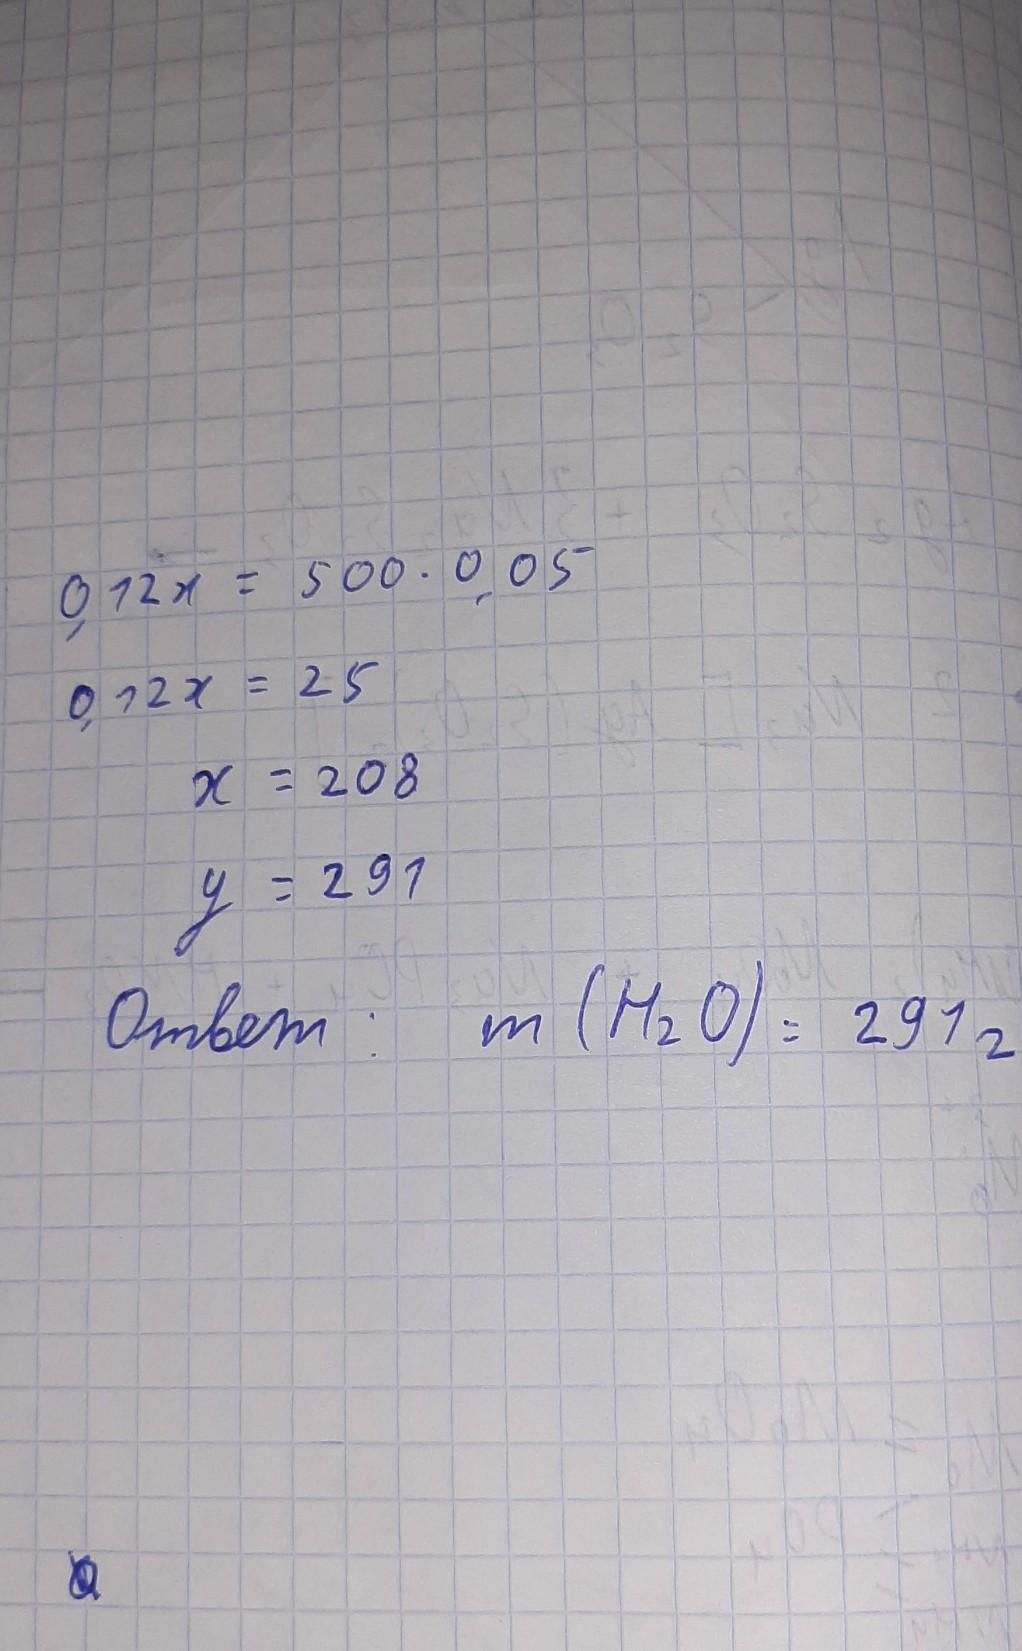 0,12x = 500 · 0,05
0,12x = 25
x = 208
y = 291
Ответ: m (H₂O) = 291 г